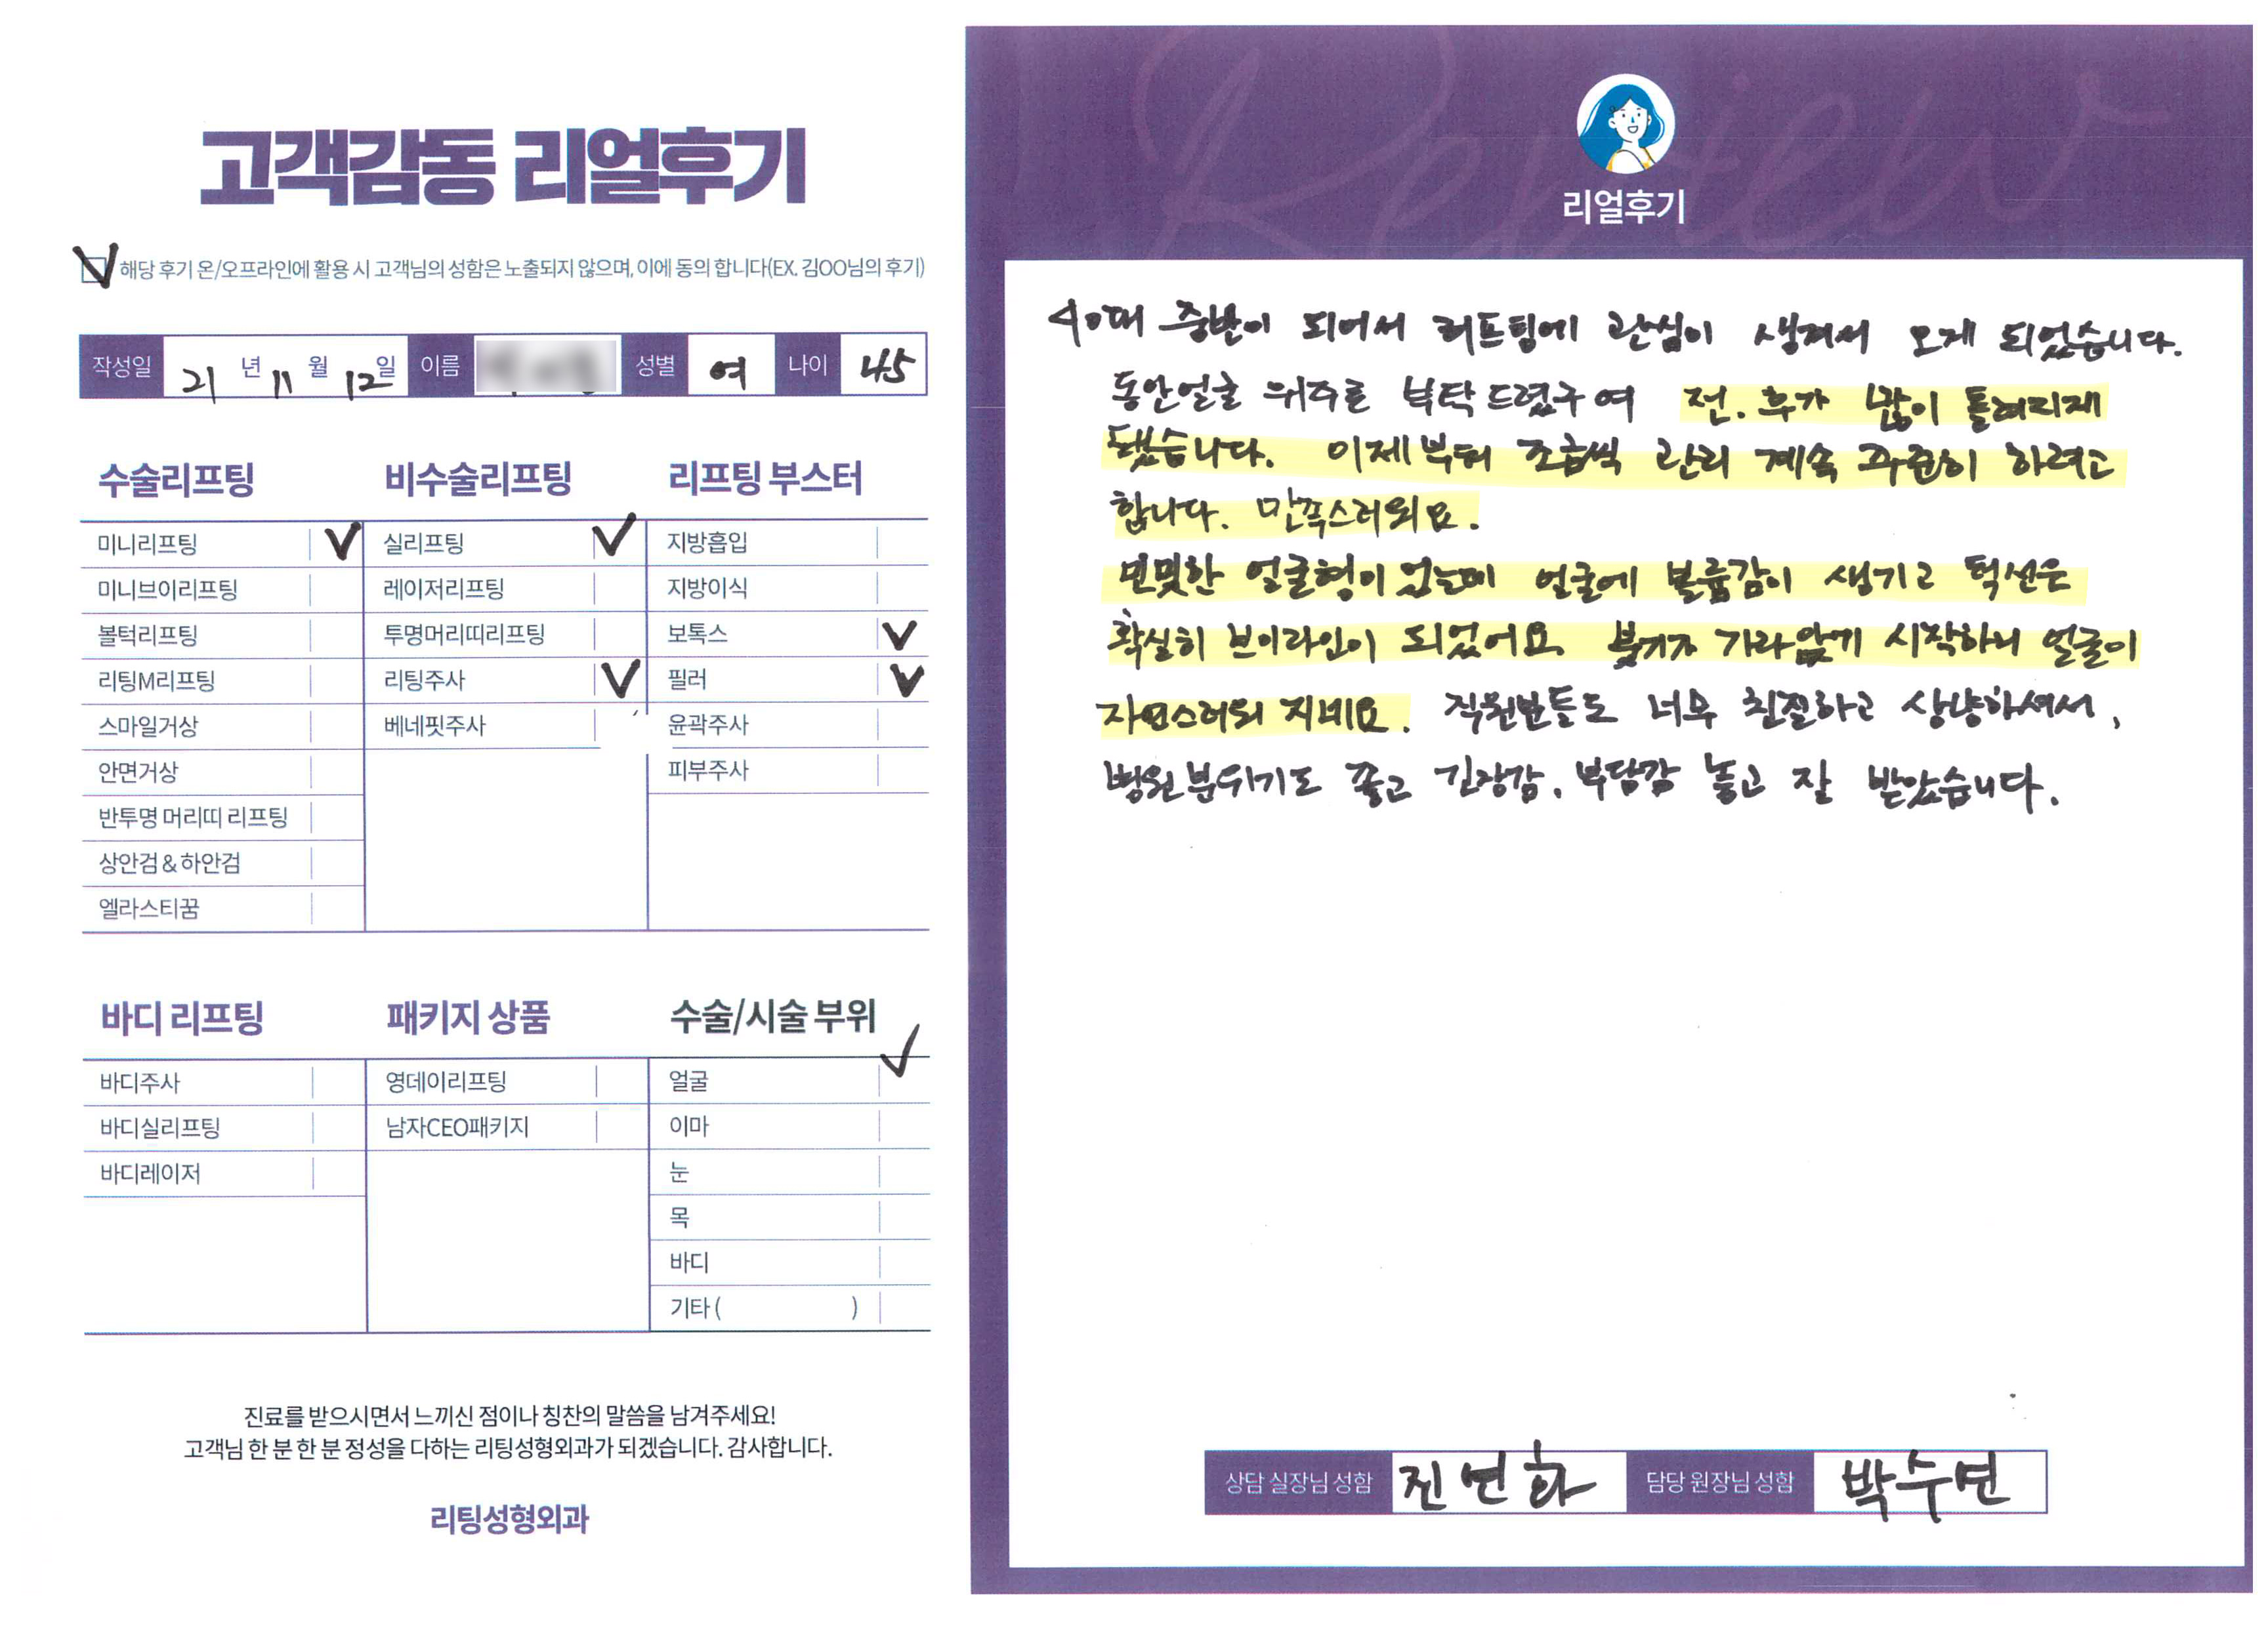 고객감동 리얼후기
해당 후기 온/오프라인에 활용 시 고객님의 성함은 노출되지 않으며, 이에 동의 합니다(EX. 김OO님의 후기)
작성일 21 년 11 월 12 일 이름 성별 여 나이 45
수술리프팅 비수술리프팅 리프팅 부스터
미니리프팅 실리프팅 지방흡입
미니브이리프팅 레이저리프팅 지방이식
볼턱리프팅 투명머리띠리프팅 보톡스
리팅M리프팅 리팅주사 필러
스마일거상 베네핏주사 윤곽주사
안면거상 피부주사
반투명 머리띠 리프팅
상안검 & 하안검
엘라스티꿈
바디 리프팅 패키지 상품 수술/시술 부위
바디주사 영데이리프팅 얼굴
바디실리프팅 남자CEO패키지 이마
바디레이저 눈
목
바디
기타 ( )
진료를 받으시면서 느끼신 점이나 칭찬의 말씀을 남겨주세요!
고객님 한 분 한 분 정성을 다하는 리팅성형외과가 되겠습니다. 감사합니다.
리팅성형외과
Review
리얼후기
40대 중반이 되어서 리프팅에 관심이 생겨서 오게 되었습니다.
동안얼굴 위주로 부탁드렸구여 전.후가 많이 틀려지게
됐습니다. 이제부터 조금씩 관리 계속 꾸준히 하려고
합니다. 만족스러워요.
밋밋한 얼굴형이었는데 얼굴에 볼륨감이 생기고 턱선은
확실히 브이라인이 되었어요. 붓기가 가라앉기 시작하니 얼굴이
자연스러워 지네요. 직원분들도 너무 친절하고 상냥하셔서,
병원분위기도 좋고 긴장감. 부담감 놓고 잘 받았습니다.
상담 실장님 성함 진연화 담당 원장님 성함 박수연